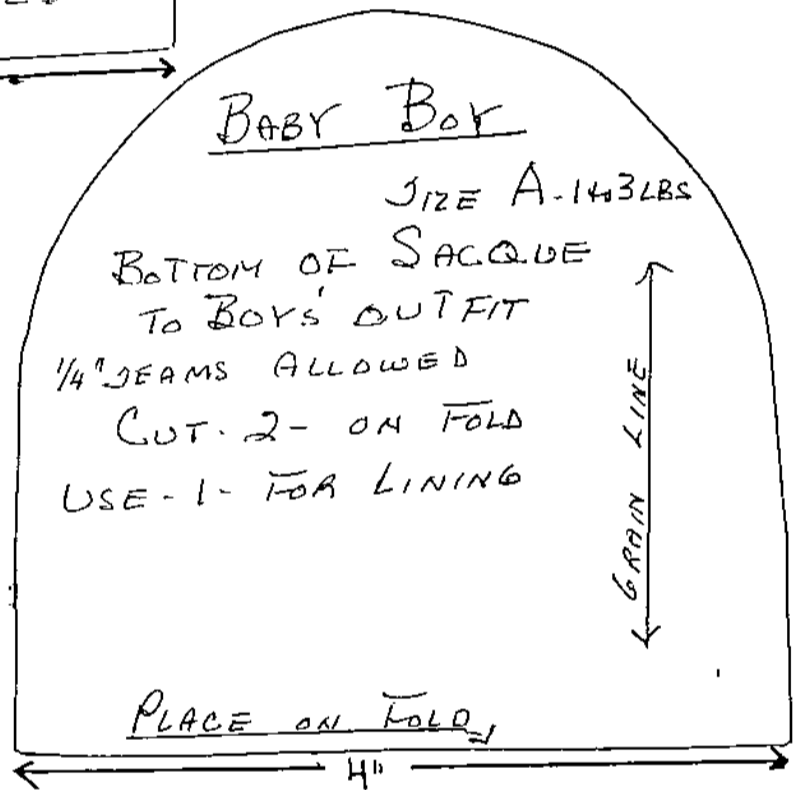 BABY BOY
SIZE A-1 to 3 LBS
BOTTOM OF SACQUE
TO BOYS' OUTFIT
1/4" SEAMS ALLOWED
CUT-2- ON FOLD
USE-1- FOR LINING
GRAIN LINE
PLACE ON FOLD
4"